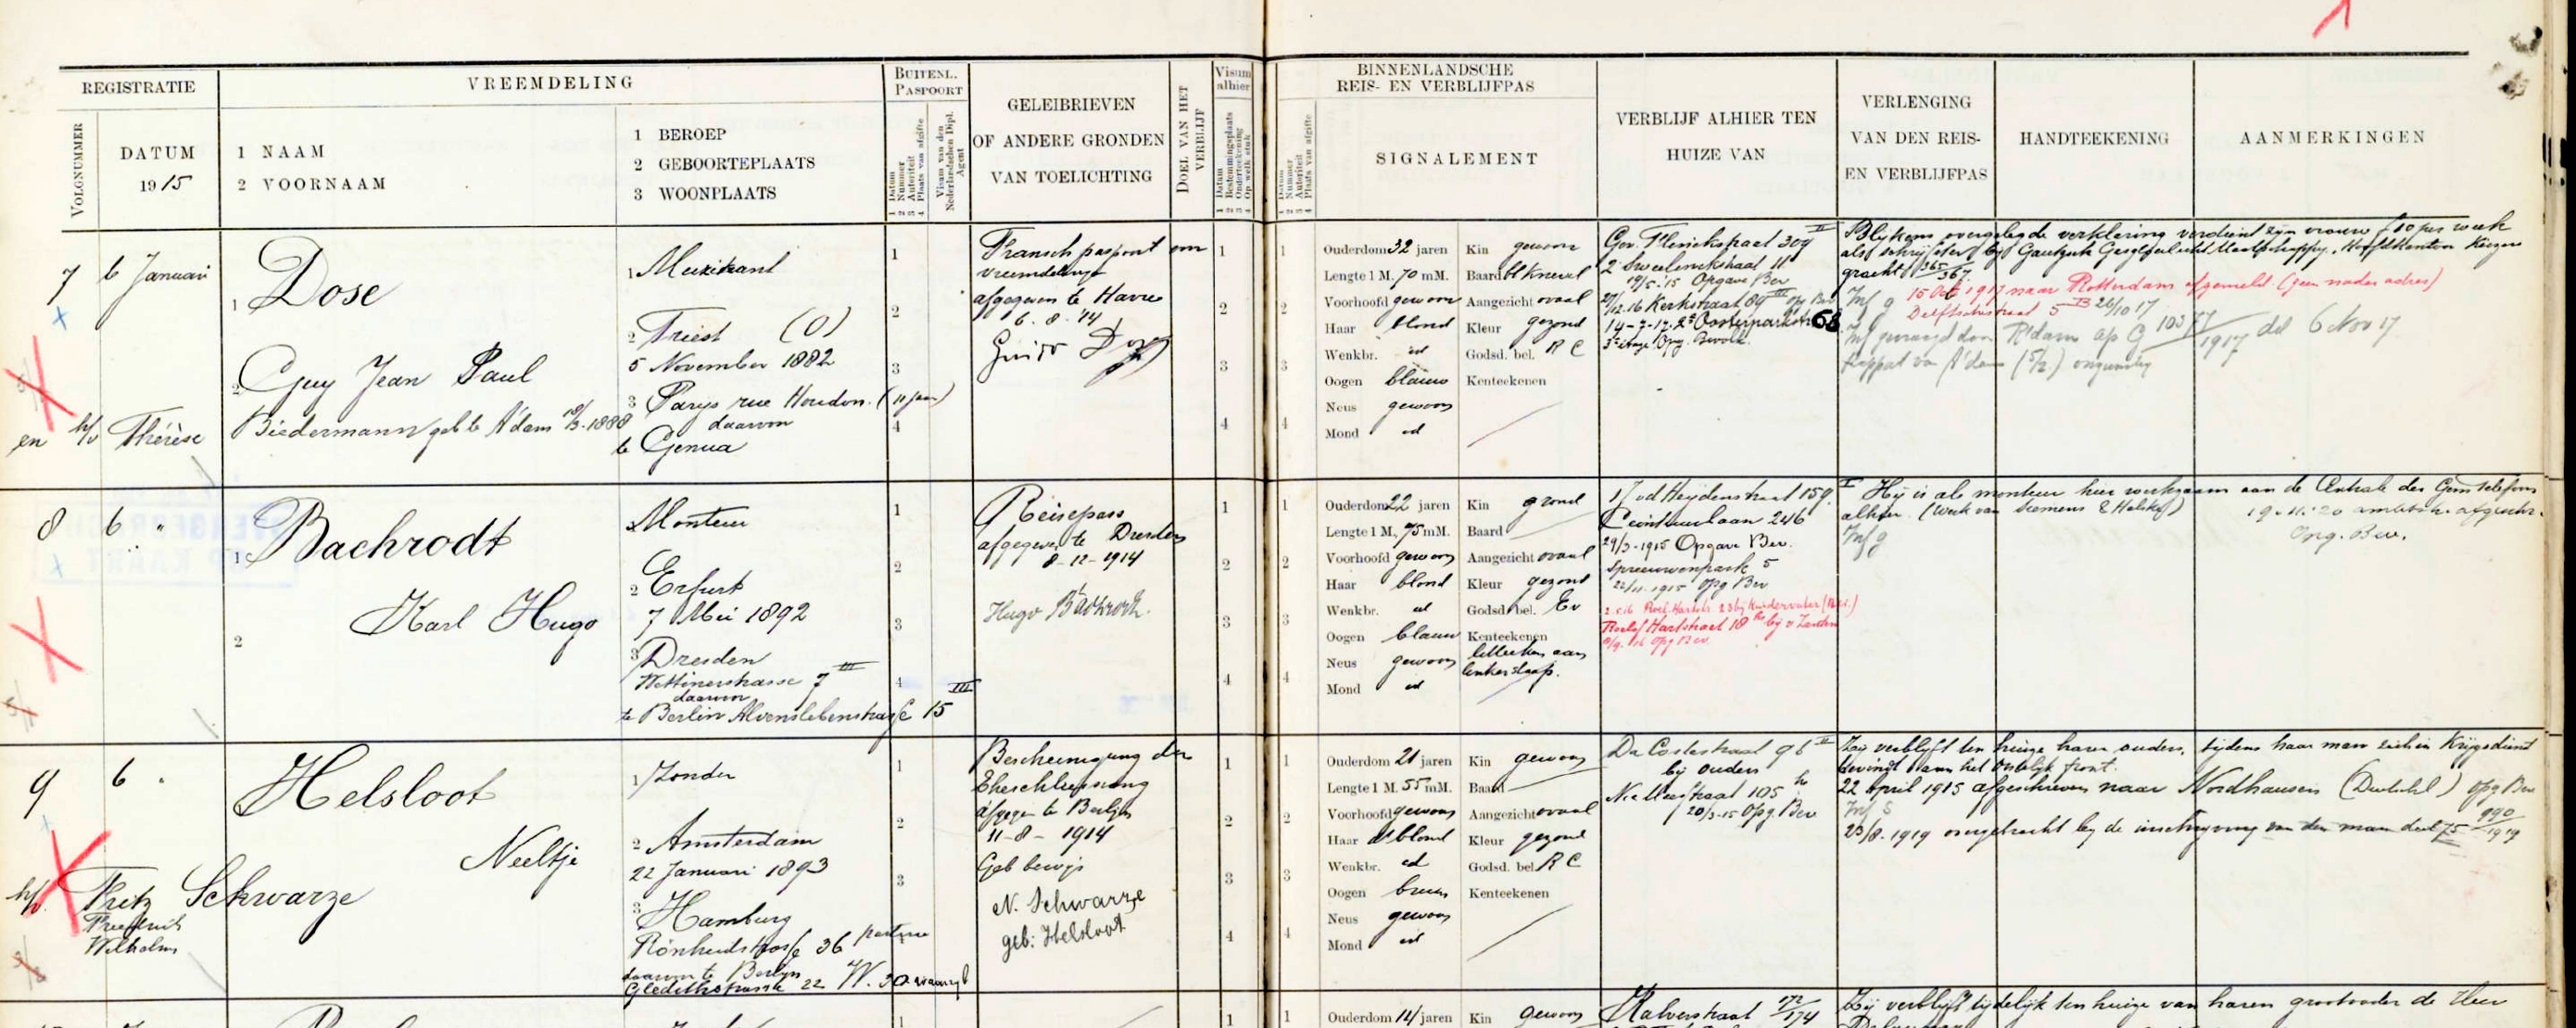 REGISTRATIE
VOLGNUMMER
DATUM
1915
VREEMDELING
1 NAAM
2 VOORNAAM
1 BEROEP
2 GEBOORTEPLAATS
3 WOONPLAATS
BUITENL. PASPOORT
1 Datum
2 Nummer
3 Autoriteit
4 Plaats van afgifte
Visum van den Nederlandschen Dipl. Agent
GELEIBRIEVEN
OF ANDERE GRONDEN
VAN TOELICHTING
DOEL VAN HET VERBLIJF
Visum alhier
1 Datum
2 Bestemmingsplaats
3 Onderteekening
4 Op welk stuk
BINNENLANDSCHE
REIS- EN VERBLIJFPAS
1 Datum
2 Nummer
3 Autoriteit
4 Plaats van afgifte
SIGNALEMENT
VERBLIJF ALHIER TEN
HUIZE VAN
VERLENGING
VAN DEN REIS-
EN VERBLIJFPAS
HANDTEEKENING
AANMERKINGEN
7 6 Januari
1 Dose
2 Guy Jean Paul
en h/v Thérèse Biedermann geb te A'dam 18/3-1888
1 Muzikant
2 Triest (O)
5 November 1882
3 Parys rue Houdon (11 jaar)
daarvoor
te Genua
1
2
3
4
Fransch paspoort om
vreemdelinge
afgegeven te Havre
6.8.14
Guido Dose
1
2
3
4
1
2
3
4
Ouderdom 32 jaren Kin gewoon
Lengte 1 M. 70 mM. Baard bl knevel
Voorhoofd gewoon Aangezicht ovaal
Haar blond Kleur gezond
Wenkbr. id Godsd. bel. R C
Oogen blauw Kenteekenen
Neus gewoon
Mond id
Gov. Flinckstraat 309 II
2e Sweelinckstraat 11
19/5.'15 Opgave Bev
27/12.16 Kerkstraat 89 III opg Bev
14-7-17. 2e Oosterparkstr 68
3e étage Opg. Bevolk.
Blijkens overgelegde verklaring verdient zijn vrouw f 10 per week
als schrijfster bij Maatschappij, Hoofdkantoor Keizers
gracht 365/367
Inf g 15 Oct 1917 naar Rotterdam afgemeld. (geen nader adres)
Delftschestraat 5 B 26/10 17
Inf gevraagd door R'dam op G 103 57/1917 dd 6 Nov 17
Rapport van A'dam (5/12.) ongunstig
8 6 "
1 Bachrodt
2 Karl Hugo
Monteur
2 Erfurt
7 Mei 1892
3 Dresden
Wettinerstrasse 7 III
daarvoor
te Berlin Alvenslebenstrasse 15 III
1
2
3
4
Reisepass
afgegeven te Dresden
8-12-1914
Hugo Bachrodt.
1
2
3
4
1
2
3
4
Ouderdom 22 jaren Kin grond
Lengte 1 M. 75 mM. Baard
Voorhoofd gewoon Aangezicht ovaal
Haar blond Kleur gezond
Wenkbr. id Godsd. bel. Ev
Oogen blauw Kenteekenen
Neus gewoon litteeken aan
Mond id linkerslaap.
1/ vd Heijdenstraat 159 I
Ceintuurbaan 246
29/3-1915 Opgave Bev.
Spreeuwenpark 5
22/11.1915 Opg Bev
2.5.16 Roel. Hartstr. 23 bij Kindervater
Roelof Hartstraat 18 hs bij v Zanten
8/9. 16 Opg Bev.
Hij is als monteur hier werkzaam aan de Centrale der Gem telefoon
alhier. (Werk van Siemens & Halske)
Inf g
19.11.20 ambtsh. afgeschr.
Opg. Bev.
9 6 "
Helsloot
Neeltje
h/v. Fritz Schwarze
Friedrich
Wilhelm
1 Zonder
2 Amsterdam
22 Januari 1893
3 Hamburg
36 parterre
daarvoor te Berlyn
Gleditschstrasse 22 W. 30
1
2
3
Bescheinigung der
Eheschliessung
afgegev te Berlijn
11-8-1914
Geb bewijs
N. Schwarze
geb: Helsloot
1
2
3
4
1
2
3
4
Ouderdom 21 jaren Kin gewoon
Lengte 1 M. 55 mM. Baard
Voorhoofd gewoon Aangezicht ovaal
Haar d blond Kleur gezond
Wenkbr. id Godsd. bel. R C
Oogen bruin Kenteekenen
Neus gewoon
Mond id
Da Costastraat 96 II
bij ouders
straat 105 hs
20/3-15 Opg. Bev
Zij verblijft ten huize harer ouders, tijdens haar man zich in Krijgsdienst
bevindt aan het Oostelijk front.
22 April 1915 afgeschreven naar Nordhausen (Duitschl) Opg Bev
Inf S
23/8. 1919 overgebracht bij de inschrijving van den man deel 75 990/1919
1
1
1
Ouderdom 14 jaren Kin gewoon
Kalverstraat 172/174
Zij verblijft tijdelijk ten huize van haren grootvader de Heer